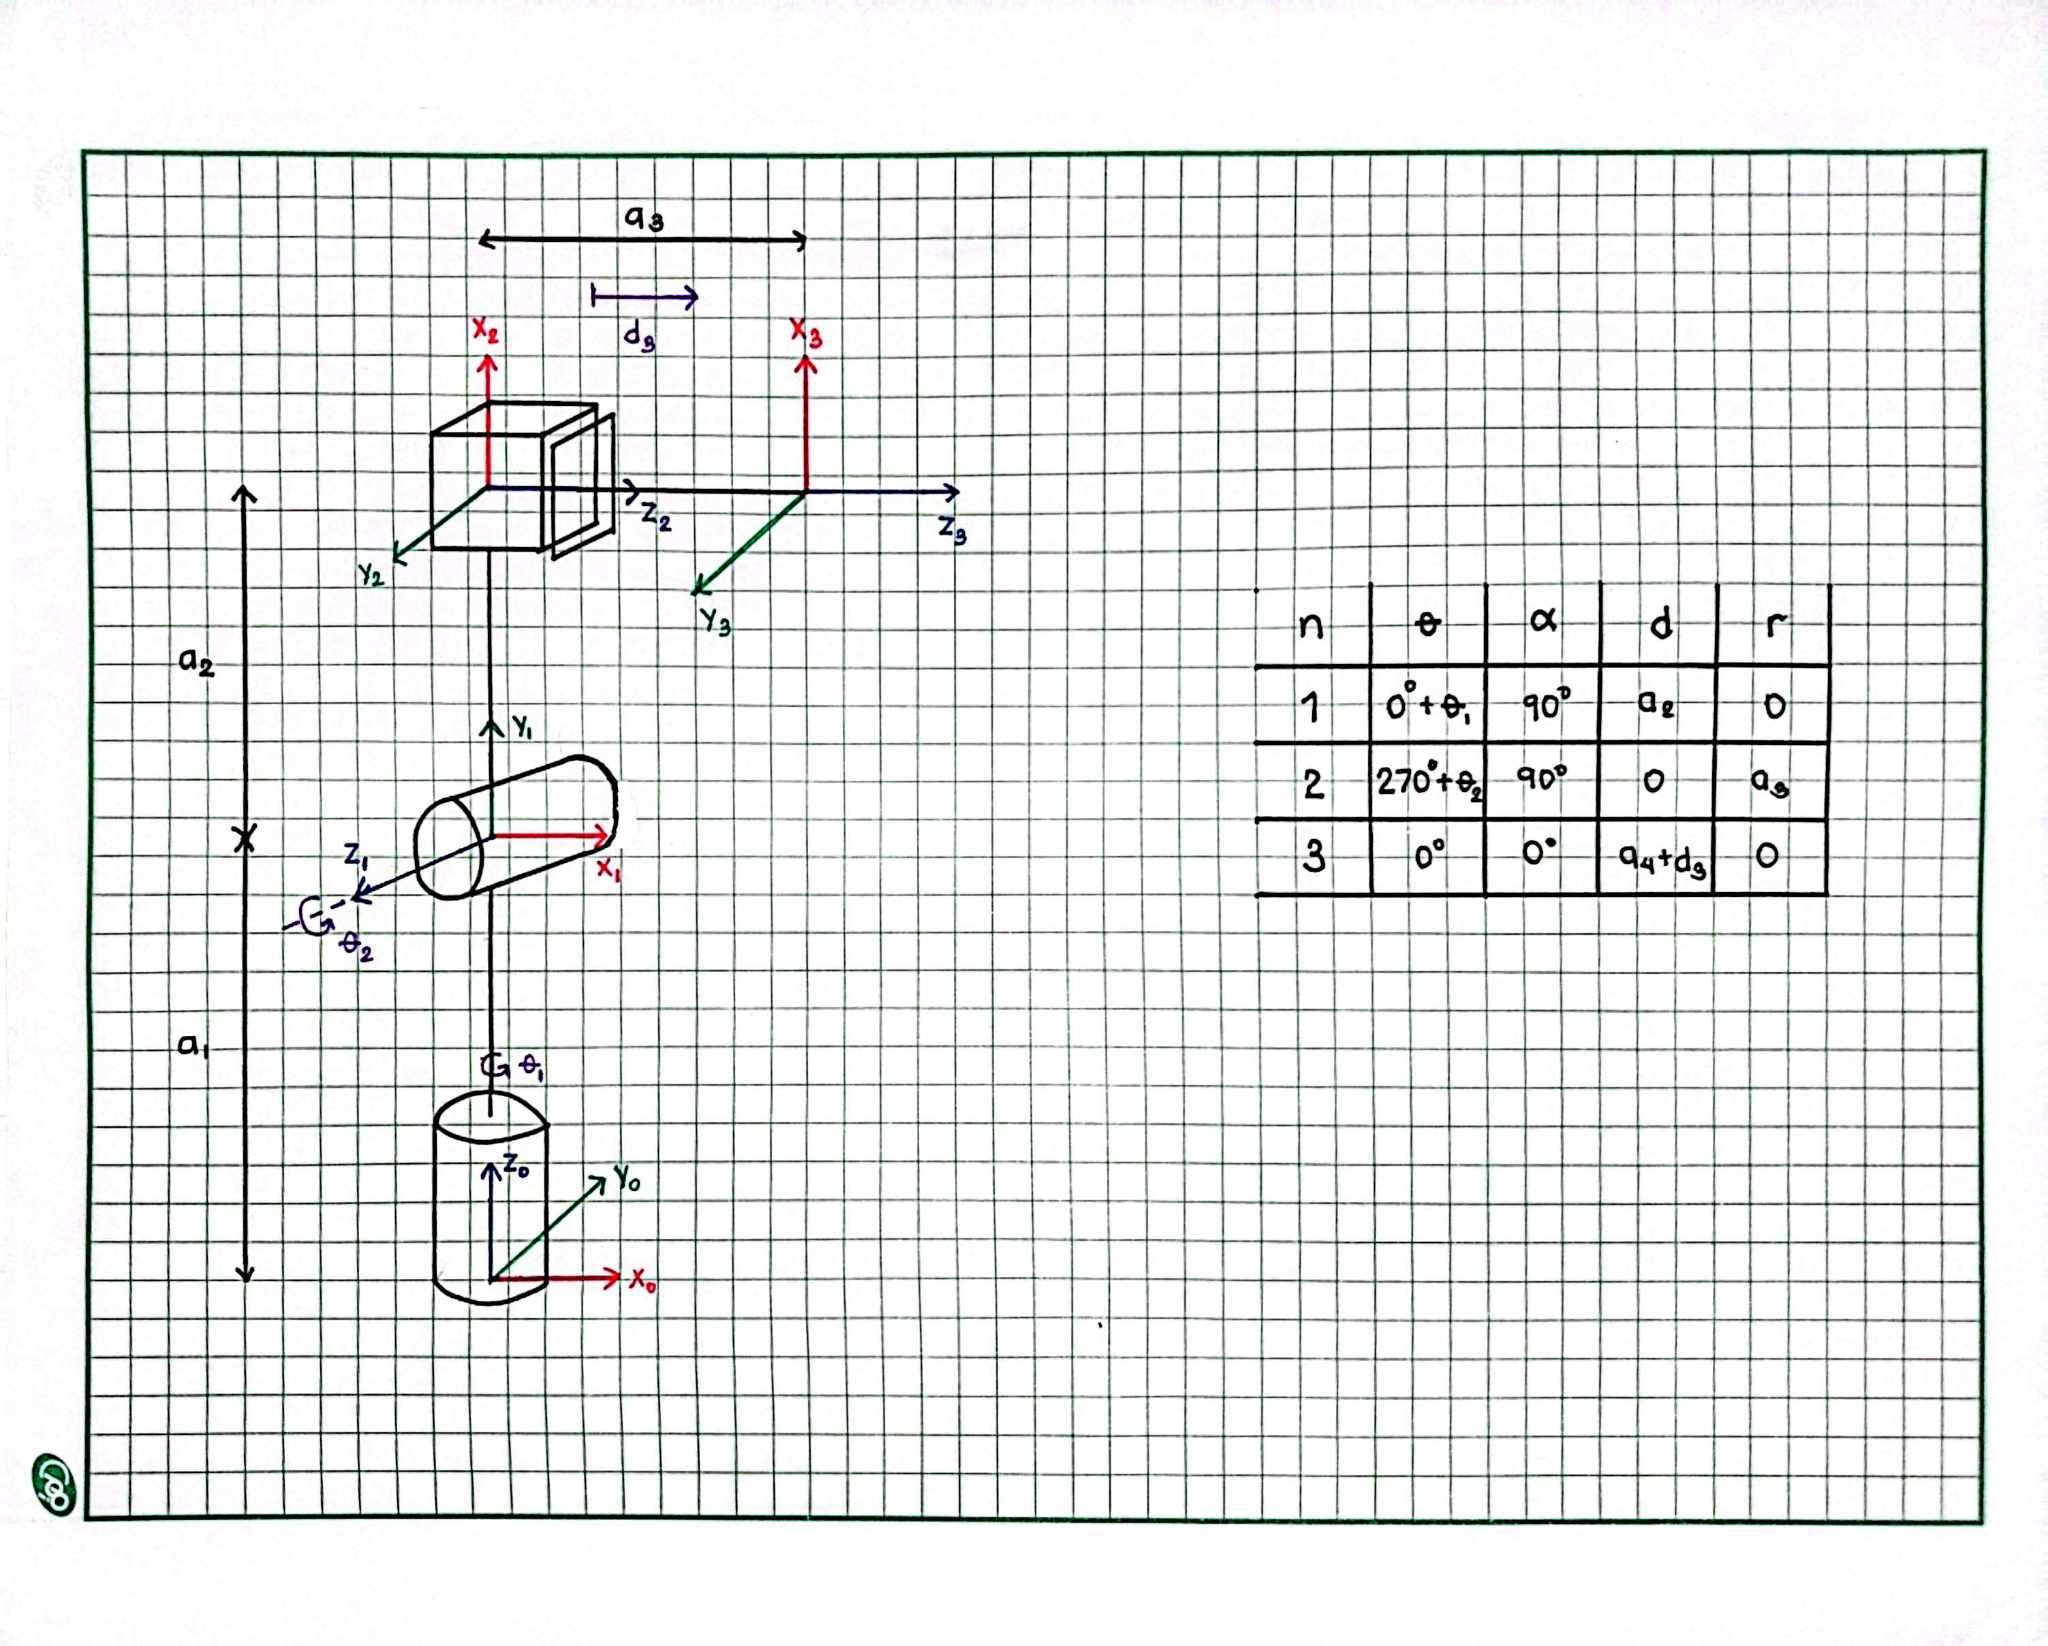 a₃
d₃
X₂
X₃
Z₂
Z₃
Y₂
Y₃
a₂
Y₁
Z₁
X₁
θ₂
a₁
θ₁
Z₀
Y₀
X₀
n θ α d r
1 0°+θ₁ 90° a₂ 0
2 270°+θ₂ 90° 0 a₃
3 0° 0° a₄+d₃ 0